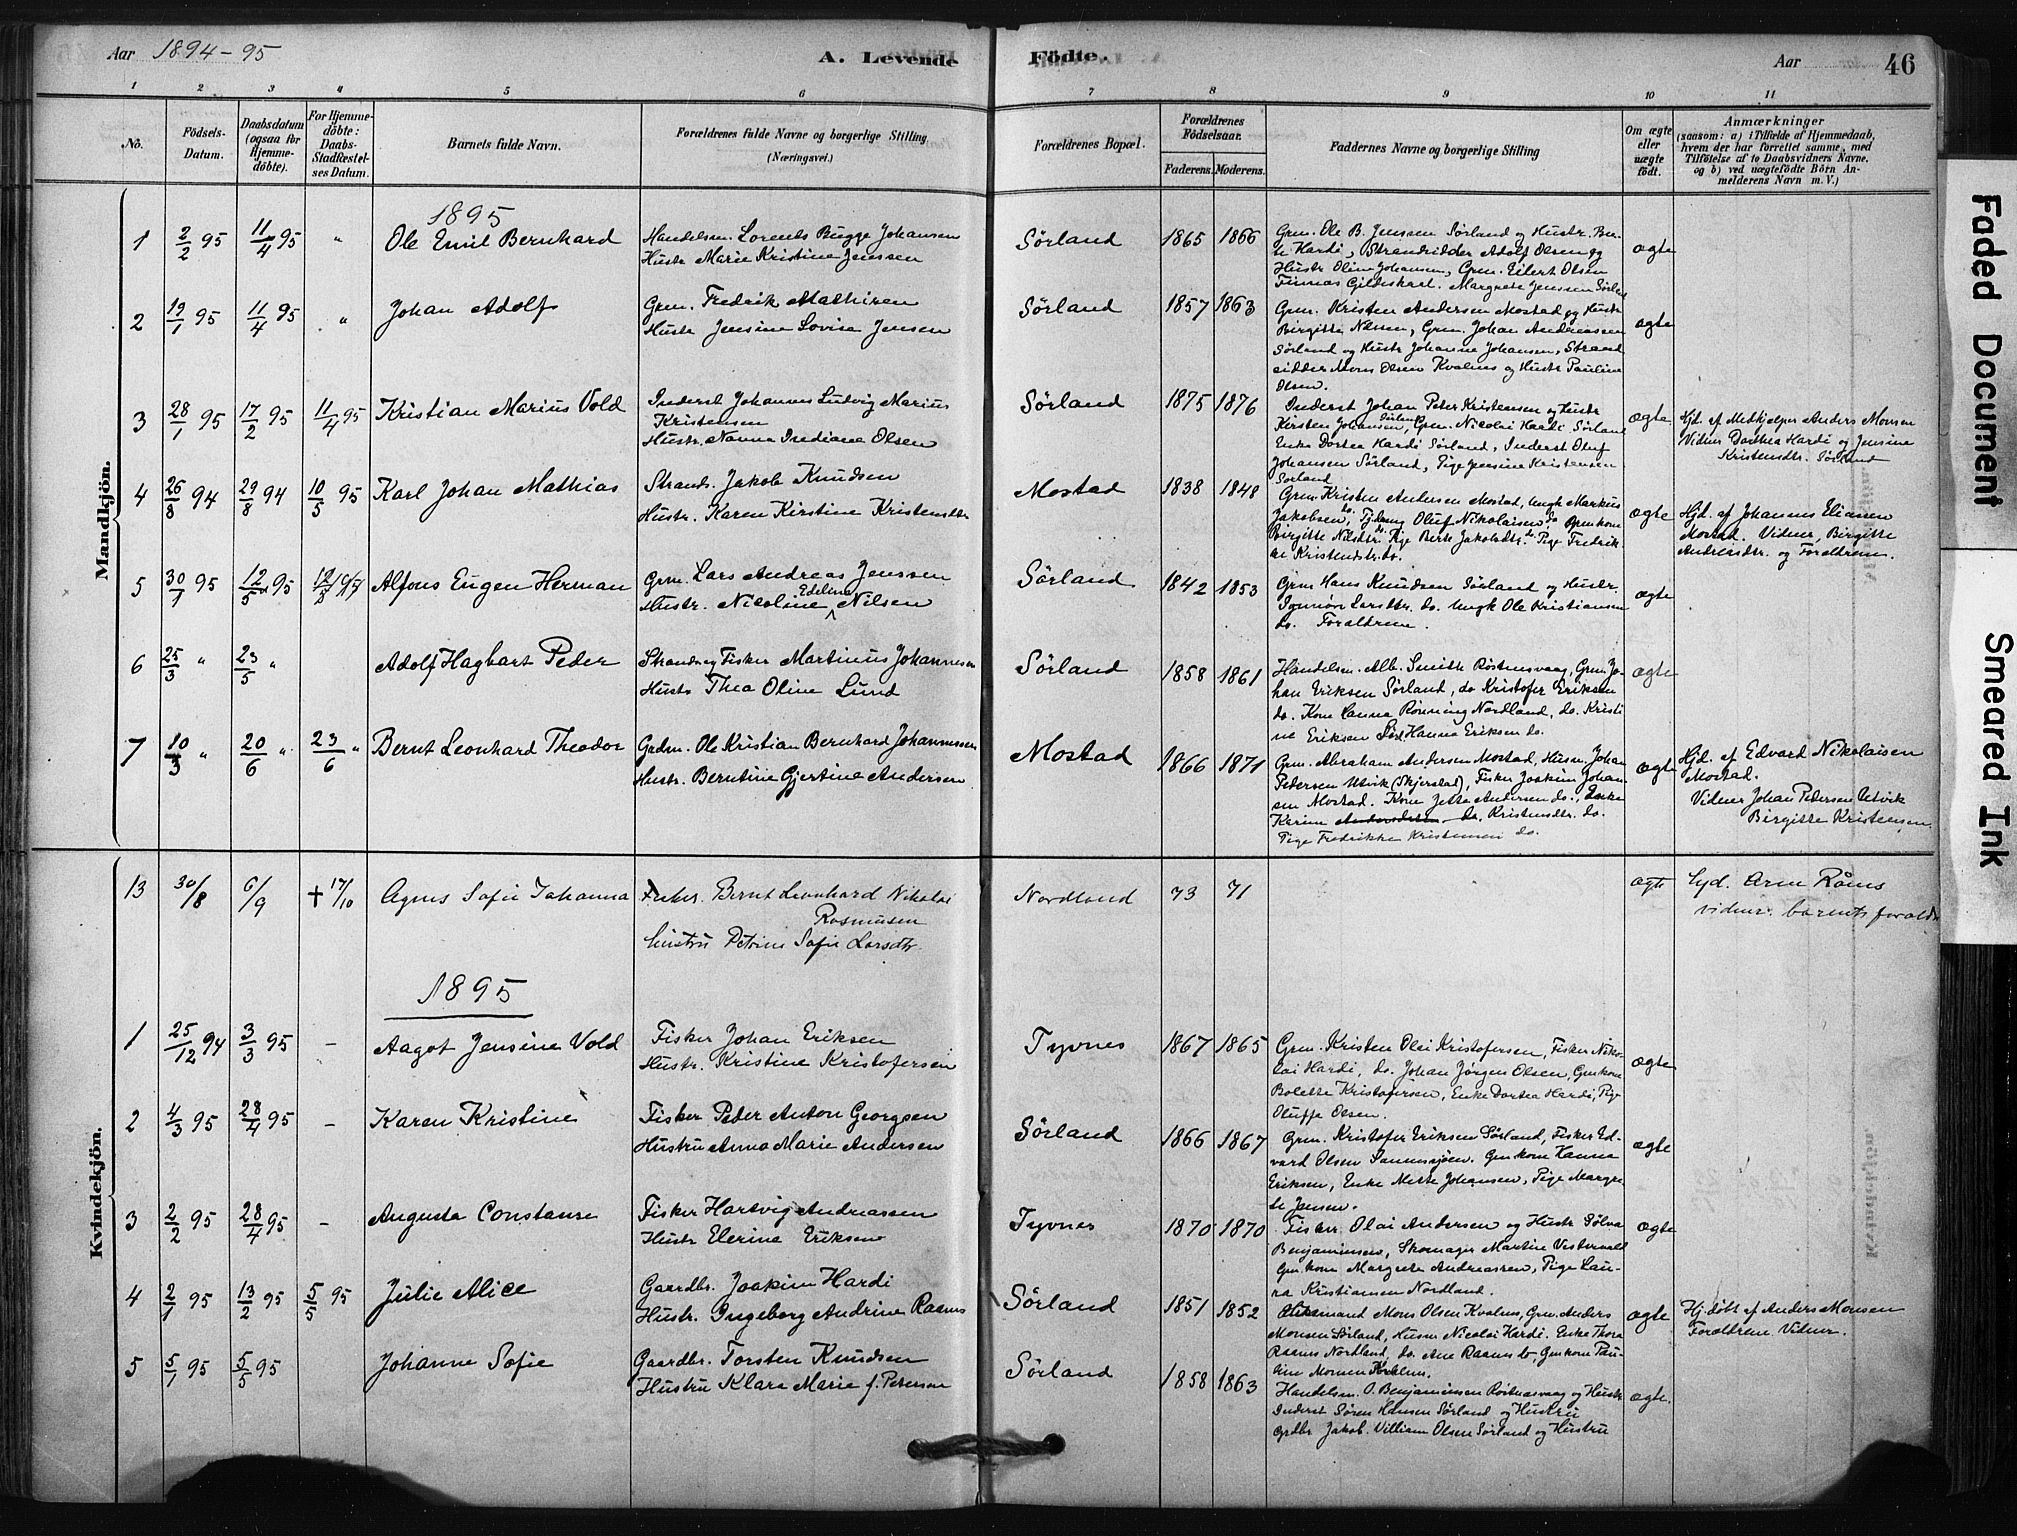 Aar 1894-95
A. Levende
Födte.
Aar
46
1 2 3 4 5 6 7 8 9 10 11
No.
Födsels-Datum.
Daabsdatum (ogsaa for Hjemme-döbte).
For Hjemme-döbte: Daabs-Stadfæstel-ses Datum.
Barnets fulde Navn.
Forældrenes fulde Navne og borgerlige Stilling (Næringsvei.)
Forældrenes Bopæl.
Forældrenes Födselsaar.
Faderens. Moderens.
Faddernes Navne og borgerlige Stilling
Om ægte eller uægte födt.
Anmærkninger
(saasom: a) i Tilfælde af Hjemmedaab,
hvem der har forrettet samme, med
Tilföielse af to Daabsvidners Navne.
og b) ved uægtefödte Börn An-
melderens Navn m. V.)
Mandkjön.
1895
1 2/2 95 11/4 95 " Ole Emil Bernhard
Handelsm. Lorents Bugge Johansen
Hustr. Marie Kristine Jenssen
Sörland 1865 1866
Grm. Ole B. Jenssen Sörland og Hustr. Ber-
te Hardi, Strandsidder Adolf Olsen og
Hustr Oline Johansen, Grm. Eilert Olsen
Finnæs Gildeskaal. Margrete Jenssen Sörland
ægte
2 19/1 95 11/4 95 " Johan Adolf
Grm. Fredrik Mathisen
Hustr Jensine Lovise Jensen
Sörland 1857 1863
Grm. Kristen Andersen Mostad og Hustr
Birgitte Nilsen, Grm. Johan Andreassen
Sörland og Hustr Johanne Johansen, Strand
sidder Mons Olsen Kvalnes og Hustr Pauline
Olsen.
ægte
3 28/1 95 17/2 95 11/4 95 Kristian Marius Vold
Inderst Johannes Ludvig Marius
Kristensen
Hustr. Nanna Indiane Olsen
Sörland 1875 1876
Inderst Johan Peter Kristensen og Hustr
Kirsten Johansen, Sörland Grm. Nicolai Hardi Sörland
Enke Dortea Hardi Sörland, Inderst Oluf
Johansen Sörland, Pige Jensine Kristensen
Sörland
ægte
Hjd. af Medhjelper Anders Monsen
Vidner Dorthea Hardi og Jensine
Kristensdtr. Sörland
4 26/8 94 29/8 94 10/5 95 Karl Johan Mathias
Strands. Jakob Knudsen
Hustr. Karen Kirstine Kristensdtr
Mostad 1838 1848
Grm. Kristen Andersen Mostad, Ungk Markus
Jakobsen, do. Oluf Nikolaisen do. Gmkone
Birgitte Nilsdtr. do. Pige Berte Jakobsdtr. do. Pige Fredrik-
ke Kristensdtr. do.
ægte
Hjd. af Johannes Eliassen
Mostad. Vidner, Birgitte
Andreasdtr. og Forældrene.
5 30/1 95 12/5 95 Alfons Eugen Herman
Grm. Lars Andreas Jenssen
Hustr. Nicoline Edeline Nilsen
Sörland 1842 1853
Grm Hans Knudsen Sörland og Hustr.
Larsdtr. do. Ungk Ole Kristiansen
do. Forældrene.
ægte
6 25/3 " 23/5 " Adolf Hagbart Peder
Strands og Fisker Martinus Johannesen
Hustr Thea Oline Lund
Sörland 1858 1861
Handelsm. Alb. Smith Röstnesvaag, Grm. Jo-
han Eriksen Sörland, do Kristofer Eriksen
do. Kone Hanna Rönning Nordland, do. Kristi
ne Eriksen Hanna Eriksen do.
ægte
7 10/3 " 20/6 " 23/6 " Bernt Leonhard Theodor
Grdm. Ole Kristian Bernhard Johannessen
Hustr. Berntine Gjertine Andersen
Mostad 1866 1871
Grm. Abraham Andersen Mostad, Husm. Johan
Pedersen Utvik (Skjerstad), Fisker Joakim Johan
sen Mostad. Kone Jetta Andersen do., Enke
Karine Kristensdtr. do.
Pige Fredrikke Kristensen do.
ægte
Hjd. af Edvard Nikolaisen
Mostad.
Vidner Johan Pedersen Utvik
Birgitte Kristensen
Kvindekjön.
13 30/8 6/9 + 17/10 Agnes Sofie Johanna
Fisker. Bernt Leonhard Nikolai
Rasmusen
hustru Petrine Sofie Larsdtr.
Nordland 73 71
ægte
Hjd. Arne Råness
vidner. barnets forældr
1895
1 25/12 94 3/3 95 - Aagot Jensine Vold
Fisker Johan Eriksen
Hustr. Kristine Kristofersen
Tyvnes 1867 1865
Grm. Kristen Olai Kristofersen, Fisker Niko-
lai Hardi, do. Johan Jörgen Olsen, Gmkone
Bolette Kristofersen, Enke Dortea Hardi, Pige
Oluffa Olsen.
ægte
2 4/3 95 28/4 95 - Karen Kristine
Fisker Peder Anton Georgsen
Hustru Anna Marie Andersen
Sörland 1866 1867
Grm. Kristofer Eriksen Sörland, Fisker Ed-
vard Olsen Sannessjöen. Gmkone Hanna
Eriksen, Enke Mette Johansen, Pige Margre
te Jensen.
ægte
3 2/2 95 28/4 95 - Augusta Constanse
Fisker Hartvig Andreassen
Hustr Elerine Eriksen
Tyvnes 1870 1870
Fisker. Olai Andersen og Hustr Sölva
Benjaminsen, Skomager Martin Vestervold
Gmkone Margrete Andreassen, Pige Lau-
ra Kristiansen Nordland.
ægte
4 2/1 95 13/2 95 5/5 95 Julie Alice
Gaardbr. Joakim Hardi
Hustr. Ingeborg Andrine Raanes
Sörland 1851 1852
Mons Olsen Kvalnes, Grm. Anders
Monsen Sörland, Husm Nicolai Hardi. Enke Thora
Raanes Nordland, do. Ane Raanes do, Gmkone Pau-
line Monsen Kvalnes.
ægte
Hj.döbt af Anders Monsen
Forældrene Vidner.
5 5/1 95 5/5 95 Johanne Sofie
Gaardbr. Torsten Knudsen
Hustru Klara Marie f. Petersen
Sörland 1858 1863
Handelsm. O. Benjaminsen Röstnesvaag og Hustr
Inderst Sören Hansen Sörland og Hustru
Grdbr Jakob Villiam Olsen Sörland og Hustru
ægte.
Faded Document
Smeared Ink